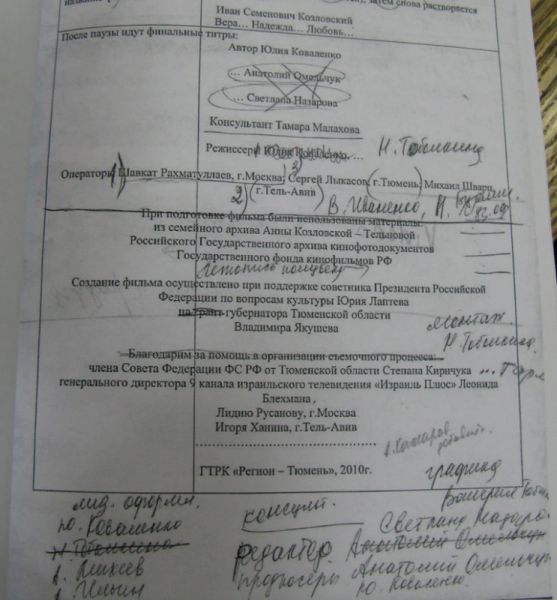 затем снова растворяется
Иван Семенович Козловский
Вера... Надежда... Любовь...
После паузы идут финальные титры:
Автор Юлия Коваленко
... Анатолий Омельчук
... Светлана Назарова
Консультант Тамара Малахова
Режиссеры Юлия Коваленко, ... Н. Тобышина
Операторы: 1) Шавкат Рахматуллаев, г.Москва; 3) Сергей Лыкасов (г.Тюмень) Михаил Шварц
2) (г.Тель-Авив) В. Иваненко, И.
При подготовке фильма были использованы материалы:
из семейного архива Анны Козловской – Тельновой
Российского Государственного архива кинофотодокументов
Государственного фонда кинофильмов РФ
Летопись
Создание фильма осуществлено при поддержке советника Президента Российской
Федерации по вопросам культуры Юрия Лаптева
на грант губернатора Тюменской области
Владимира Якушева
монтаж.
Благодарим за помощь в организации съемочного процесса:
члена Совета Федерации ФС РФ от Тюменской области Степана Киричука
генерального директора 9 канала израильского телевидения «Израиль Плюс» Леонида
Блехмана ,
Лидию Русанову, г.Москва
Игоря Ханина, г.Тель-Авив
ГТРК «Регион – Тюмень», 2010г.
графика
Валерия
оформл.
Ю. Коваленко
консульт.
Светлана
редактор Анатолий Омельчук
продюсеры Анатолий Омельчук
Ю. Коваленко.